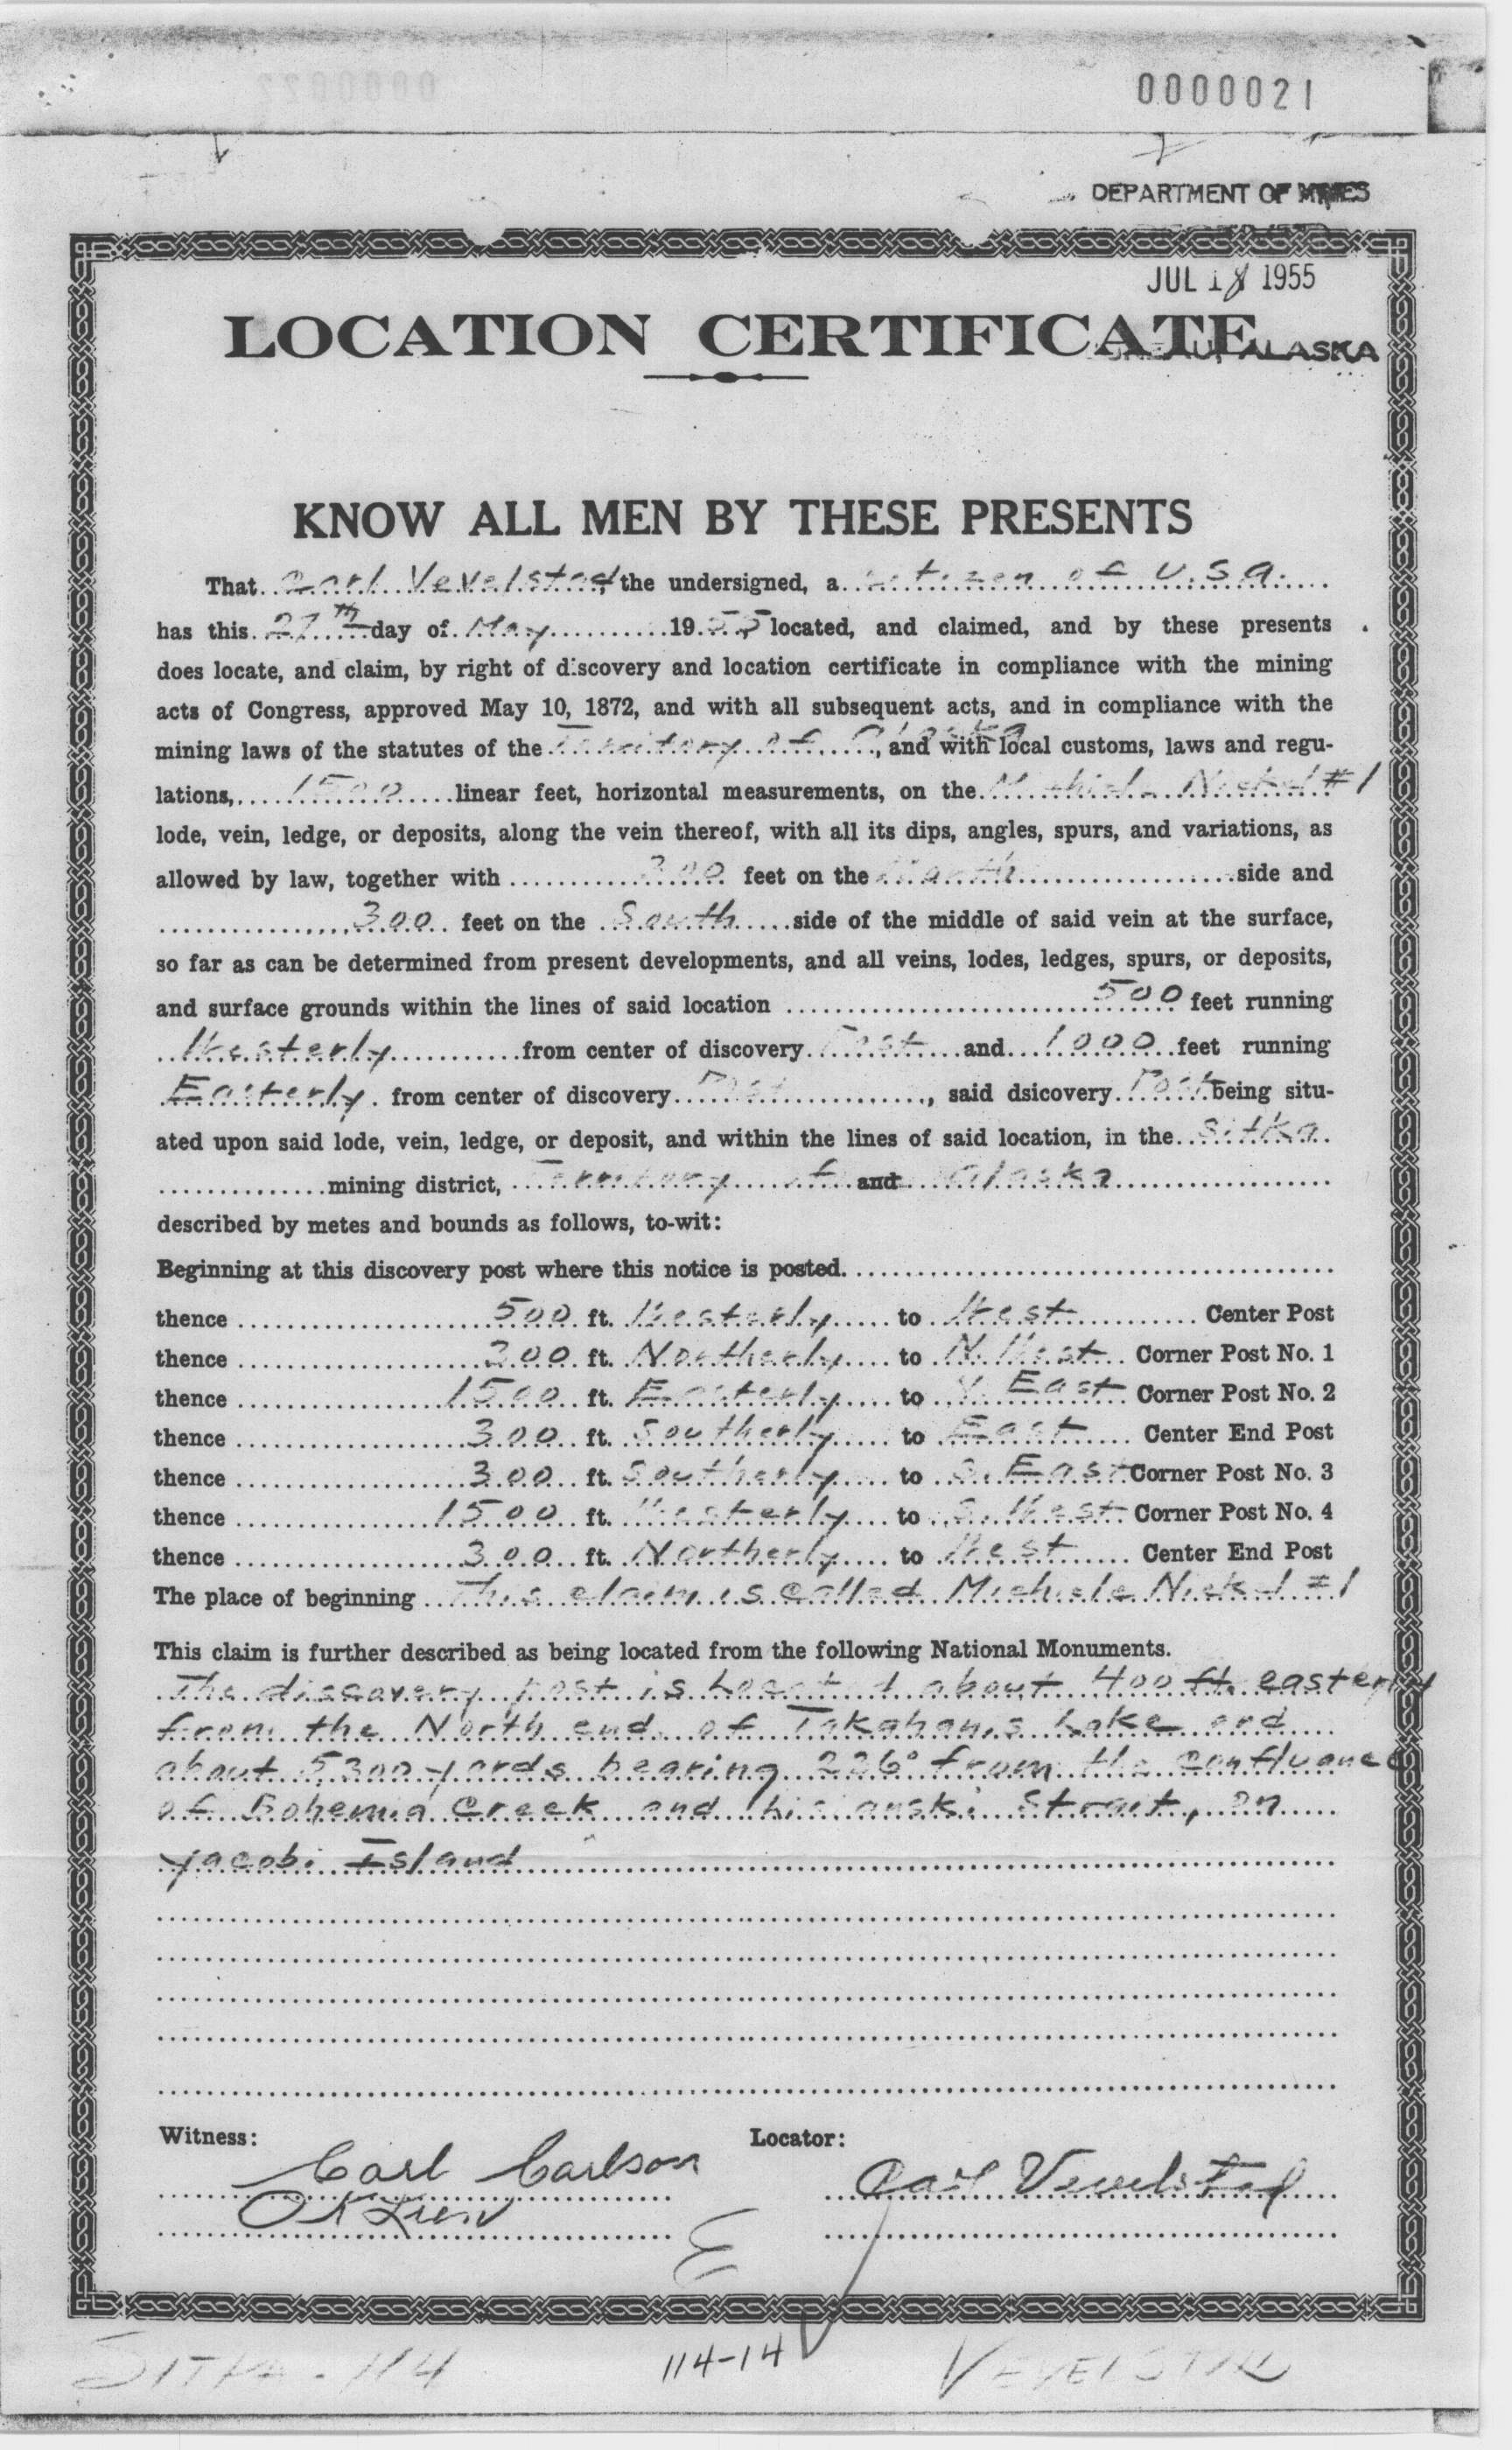 0000022
0000021
DEPARTMENT OF MINES
JUL 18 1955
LOCATION CERTIFICATE
JUNEAU, ALASKA
KNOW ALL MEN BY THESE PRESENTS
That Carl Vevelstad, the undersigned, a citizen of U.S.A.
has this 27th day of May 1955 located, and claimed, and by these presents
does locate, and claim, by right of discovery and location certificate in compliance with the mining
acts of Congress, approved May 10, 1872, and with all subsequent acts, and in compliance with the
mining laws of the statutes of the Territory of Alaska, and with local customs, laws and regu-
lations, 1500 linear feet, horizontal measurements, on the Michiele Nickel #1
lode, vein, ledge, or deposits, along the vein thereof, with all its dips, angles, spurs, and variations, as
allowed by law, together with 300 feet on the North side and
300 feet on the South side of the middle of said vein at the surface,
so far as can be determined from present developments, and all veins, lodes, ledges, spurs, or deposits,
and surface grounds within the lines of said location 500 feet running
Westerly from center of discovery Post and 1000 feet running
Easterly from center of discovery Post, said dsicovery Post being situ-
ated upon said lode, vein, ledge, or deposit, and within the lines of said location, in the Sitka
mining district, Territory of and Alaska
described by metes and bounds as follows, to-wit:
Beginning at this discovery post where this notice is posted.
thence 500 ft. Westerly to West Center Post
thence 300 ft. Northerly to N. West Corner Post No. 1
thence 1500 ft. Easterly to N. East Corner Post No. 2
thence 300 ft. Southerly to East Center End Post
thence 300 ft. Southerly to S. East Corner Post No. 3
thence 1500 ft. Westerly to S. West Corner Post No. 4
thence 300 ft. Northerly to West Center End Post
The place of beginning This claim is called Michiele Nickel #1
This claim is further described as being located from the following National Monuments.
The discovery post is Located about 400 ft. easterly
from the North end of Takahanis Lake and
about 5300 yards bearing 226° from the confluance
of Bohemia Creek and Lisianski Strait, on
Yacobi Island
Witness: Locator:
Carl Carlson Carl Vevelstad
114-14
SITKA - 114 VEVELSTAD